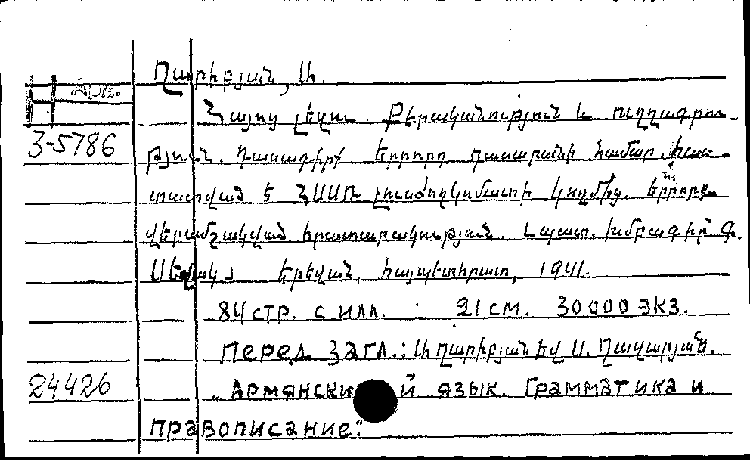 Арм.
Ղարիբյան, Ա.
Հայոց լեզու. Քերականություն և ուղղագրու-
3-5786
թյուն. Դասագիրք երրորդ դասարանի համար. հաս-
տատված է ՀՍՍՌ լուսժողկոմատի կողմից. երրորդ
վերամշակված հրատարակություն. Պատ. խմբագիր Գ.
Սևակ. Երևան, հայպետհրատ, 1941.
84 стр. с илл. 21 см. 30000 экз.
Перед загл.: Ա. Ղարիբյան եվ Ս. Ղազարյան.
24426
„Армянский язык. Грамматика и
правописание."